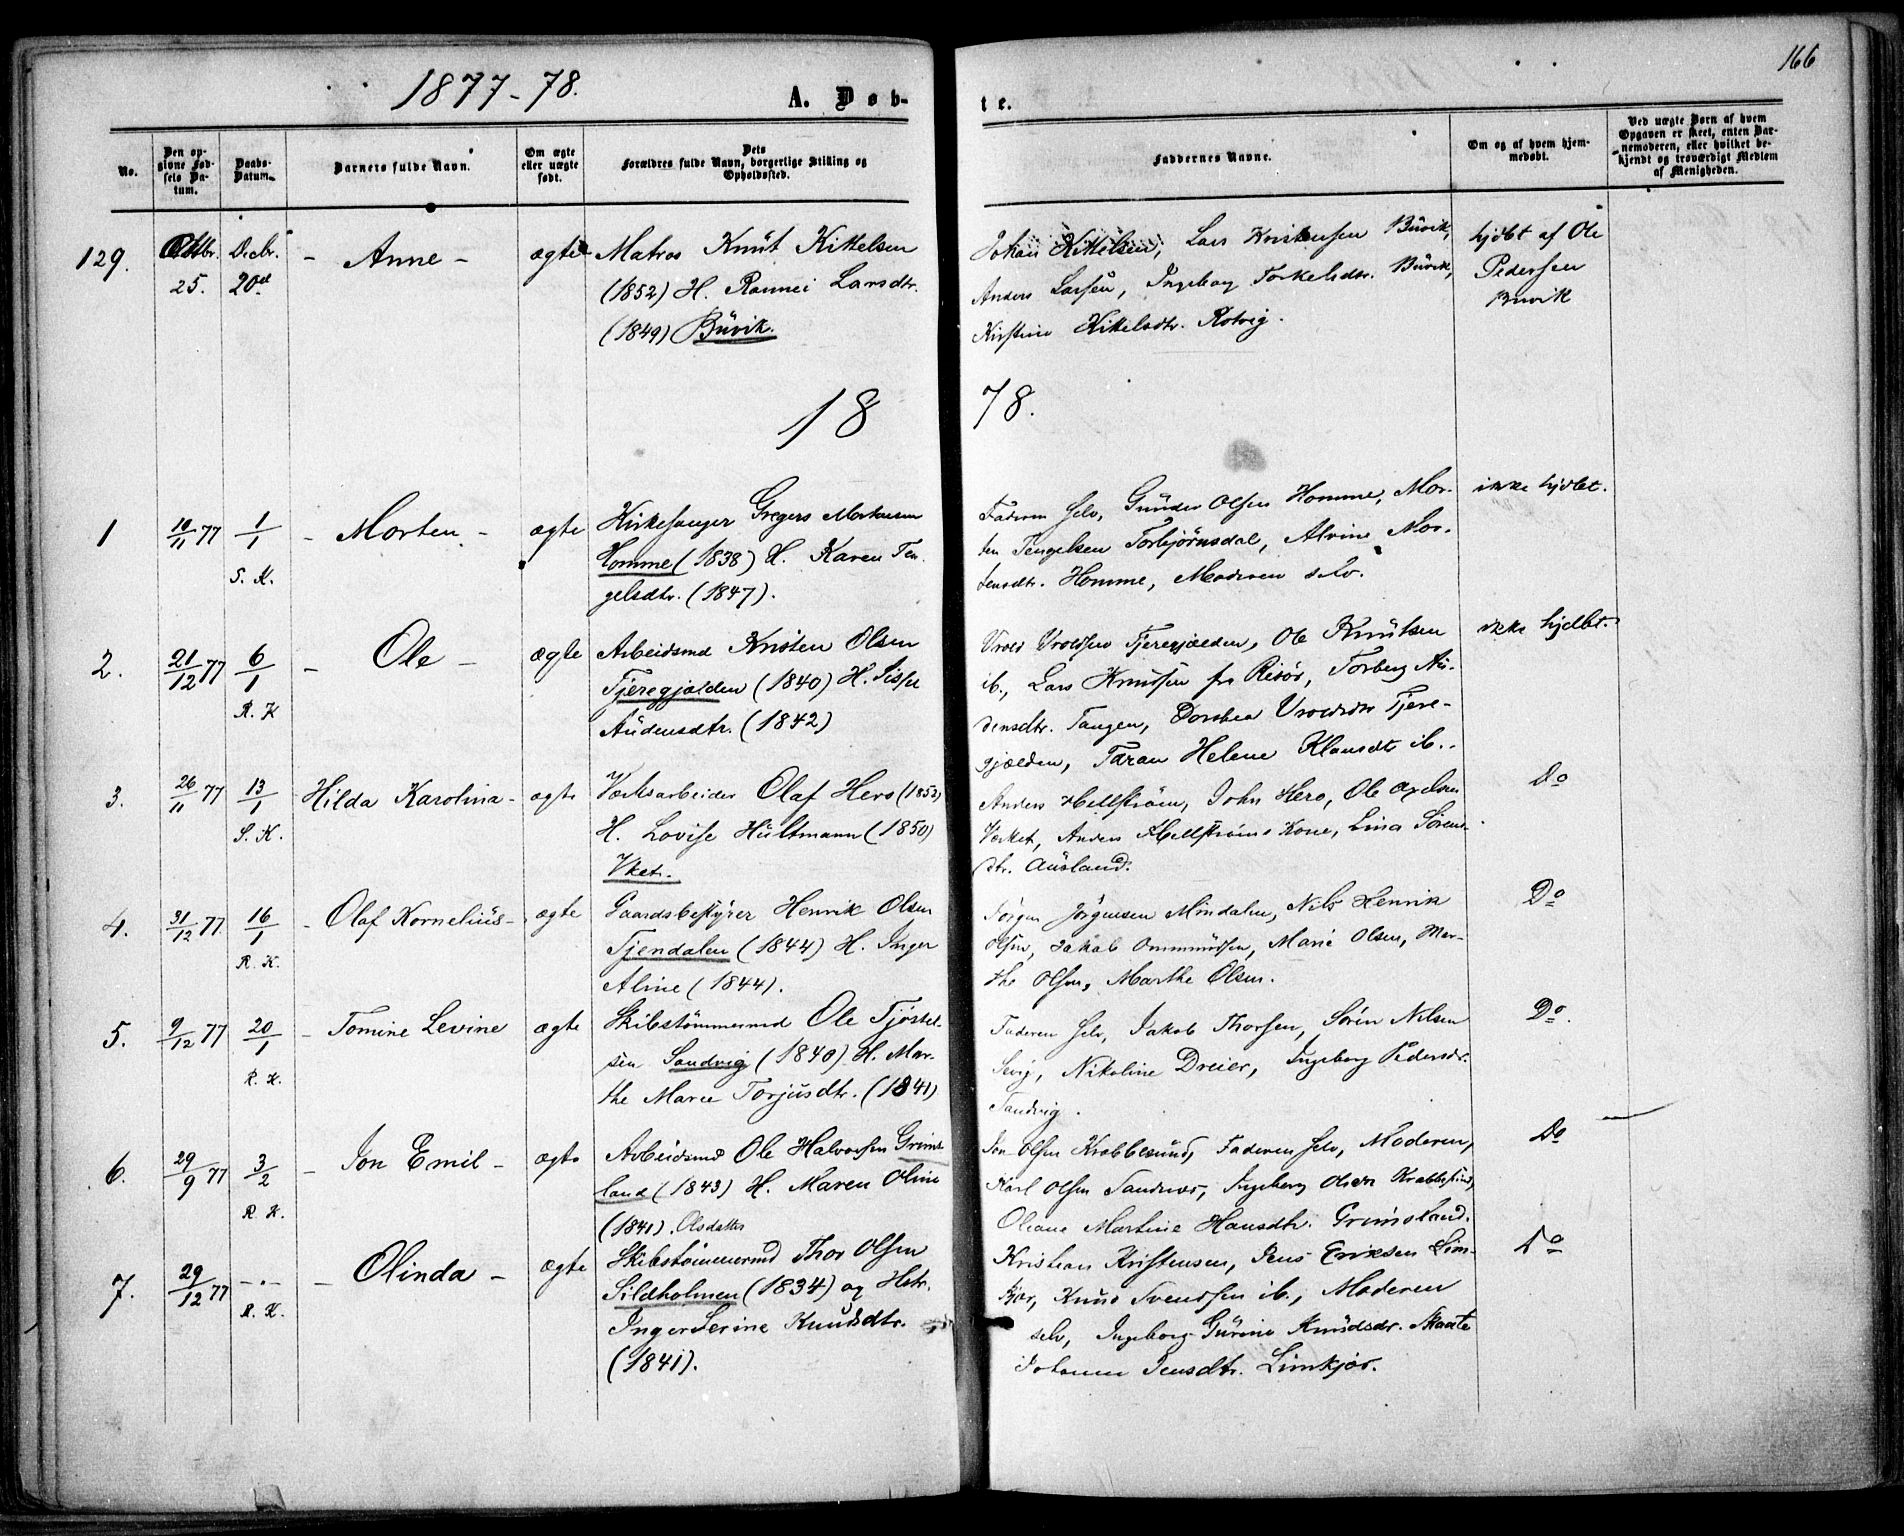 166
1877-78.
A. Døb-
te.
No.
Den op-
givne Fød-
sels Da-
tum.
Daabs-
Datum.
Barnets fulde Navn.
Om ægte
eller uægte
født.
Dets
Forældres fulde Navn, borgerlige Stilling og
Opholdssted.
Faddernes Navne.
Om og af hvem hjem-
medøbt.
Ved uægte Børn af hvem
Opgaven er skeet, enten Bar-
nemoderen, eller hvilket be-
kjendt og troværdigt Medlem
af Menigheden.
129.
Octbr.
25.
Decbr.
20d
- Anne -
ægte
Matros Knut Kittelsen
(1852) H. Rannei Larsdtr.
(1849) Buvik.
Johan Kittelsen, Lars Kristensen Buvik,
Anders Larsen, Ingeborg Torkelsdtr. Buvik,
Kirstine Kittelsdtr. Rotvig.
hjdbt af Ole
Pedersen
Buvik
18
78.
1
10/11 77
1/1
S. K.
- Morten -
ægte
Kirkesanger Gregers Mortensen
Homme (1838) H. Karen Ten-
gelsdtr. (1847).
Faderen selv, Gunder Olsen Homme, Mor-
ten Tengelsen Torbjørnsdal, Alvine Mor-
tensdtr. Homme, Moderen selv.
ikke hjdbt.
2.
21/12 77
6/1
R. K
- Ole -
ægte
Arbeidsmd Kristen Olsen
Tjeregjælden (1840) H. Sisse
Audensdtr. (1842)
Vrold Vroldsen Tjeregjælden, Ole Knutsen
ib., Lars Knutsen fra Risør, Torberg Au-
densdtr. Tangen, Dorthea Vroldsdtr Tjere-
gjælden, Taran Helene Klausdtr ib.
ikke hjdbt.
3.
26/11 77
13/1
S. K.
Hilda Karolina -
ægte
Værksarbeider Olaf Hero (1852)
H. Lovise Hultmann (1850)
Vket.
Anders Hellstrøm, John Hero, Ole Axelsen
Værket, Anders Hellstrøms Kone, Lina Sørens-
dtr. Ausland.
Do
4.
31/12 77
16/1
R. K.
- Olaf Kornelius -
ægte
Gaardsbestyrer Henrik Olsen
Tjendalen (1844) H. Inger
Aline (1844).
Jørgen Jørgensen Mindalen, Nils Henrik
Olsen, Jakob Ommundsen, Marie Olsen, Mar-
the Olsen, Marthe Olsen.
Do
5.
9/12 77
20/1
R. K.
- Tomine Levine
ægte
Skibstømmermd Ole Tjøstel-
sen Sandvig (1840) H. Mar-
the Marie Torjusdtr. (1841)
Faderen selv, Jakob Thorsen, Søren Nilsen
Sevig, Nikoline Dreier, Ingeborg Pedersdtr.
Sandvig.
Do.
6.
29/9 77
3/2
R. K.
- Jon Emil -
ægte
Arbeidsmd Ole Halvorsen Grims-
land (1843) H. Maren Oline
(1841). Olsdatter
Jon Olsen Krabbesund, Faderen selv, Moderen,
Karl Olsen Sandnæs, Ingeborg Olsen Krabbesund,
Oleane Martine Hansdtr. Grimsland.
Do
7.
29/12 77
-.-
R. K.
- Olinda -
ægte
Skibstømmermd Thor Olsen
Sildholmen (1834) og Hstr.
Inger Serine Knudsdtr.
(1841).
Kristian Kristensen, Jens Eriksen Lim-
kjær, Knud Svendsen ib., Moderen
selv, Ingeborg Gurine Knudsdr. Skaate
Johanne Jensdtr. Limkjær.
Do